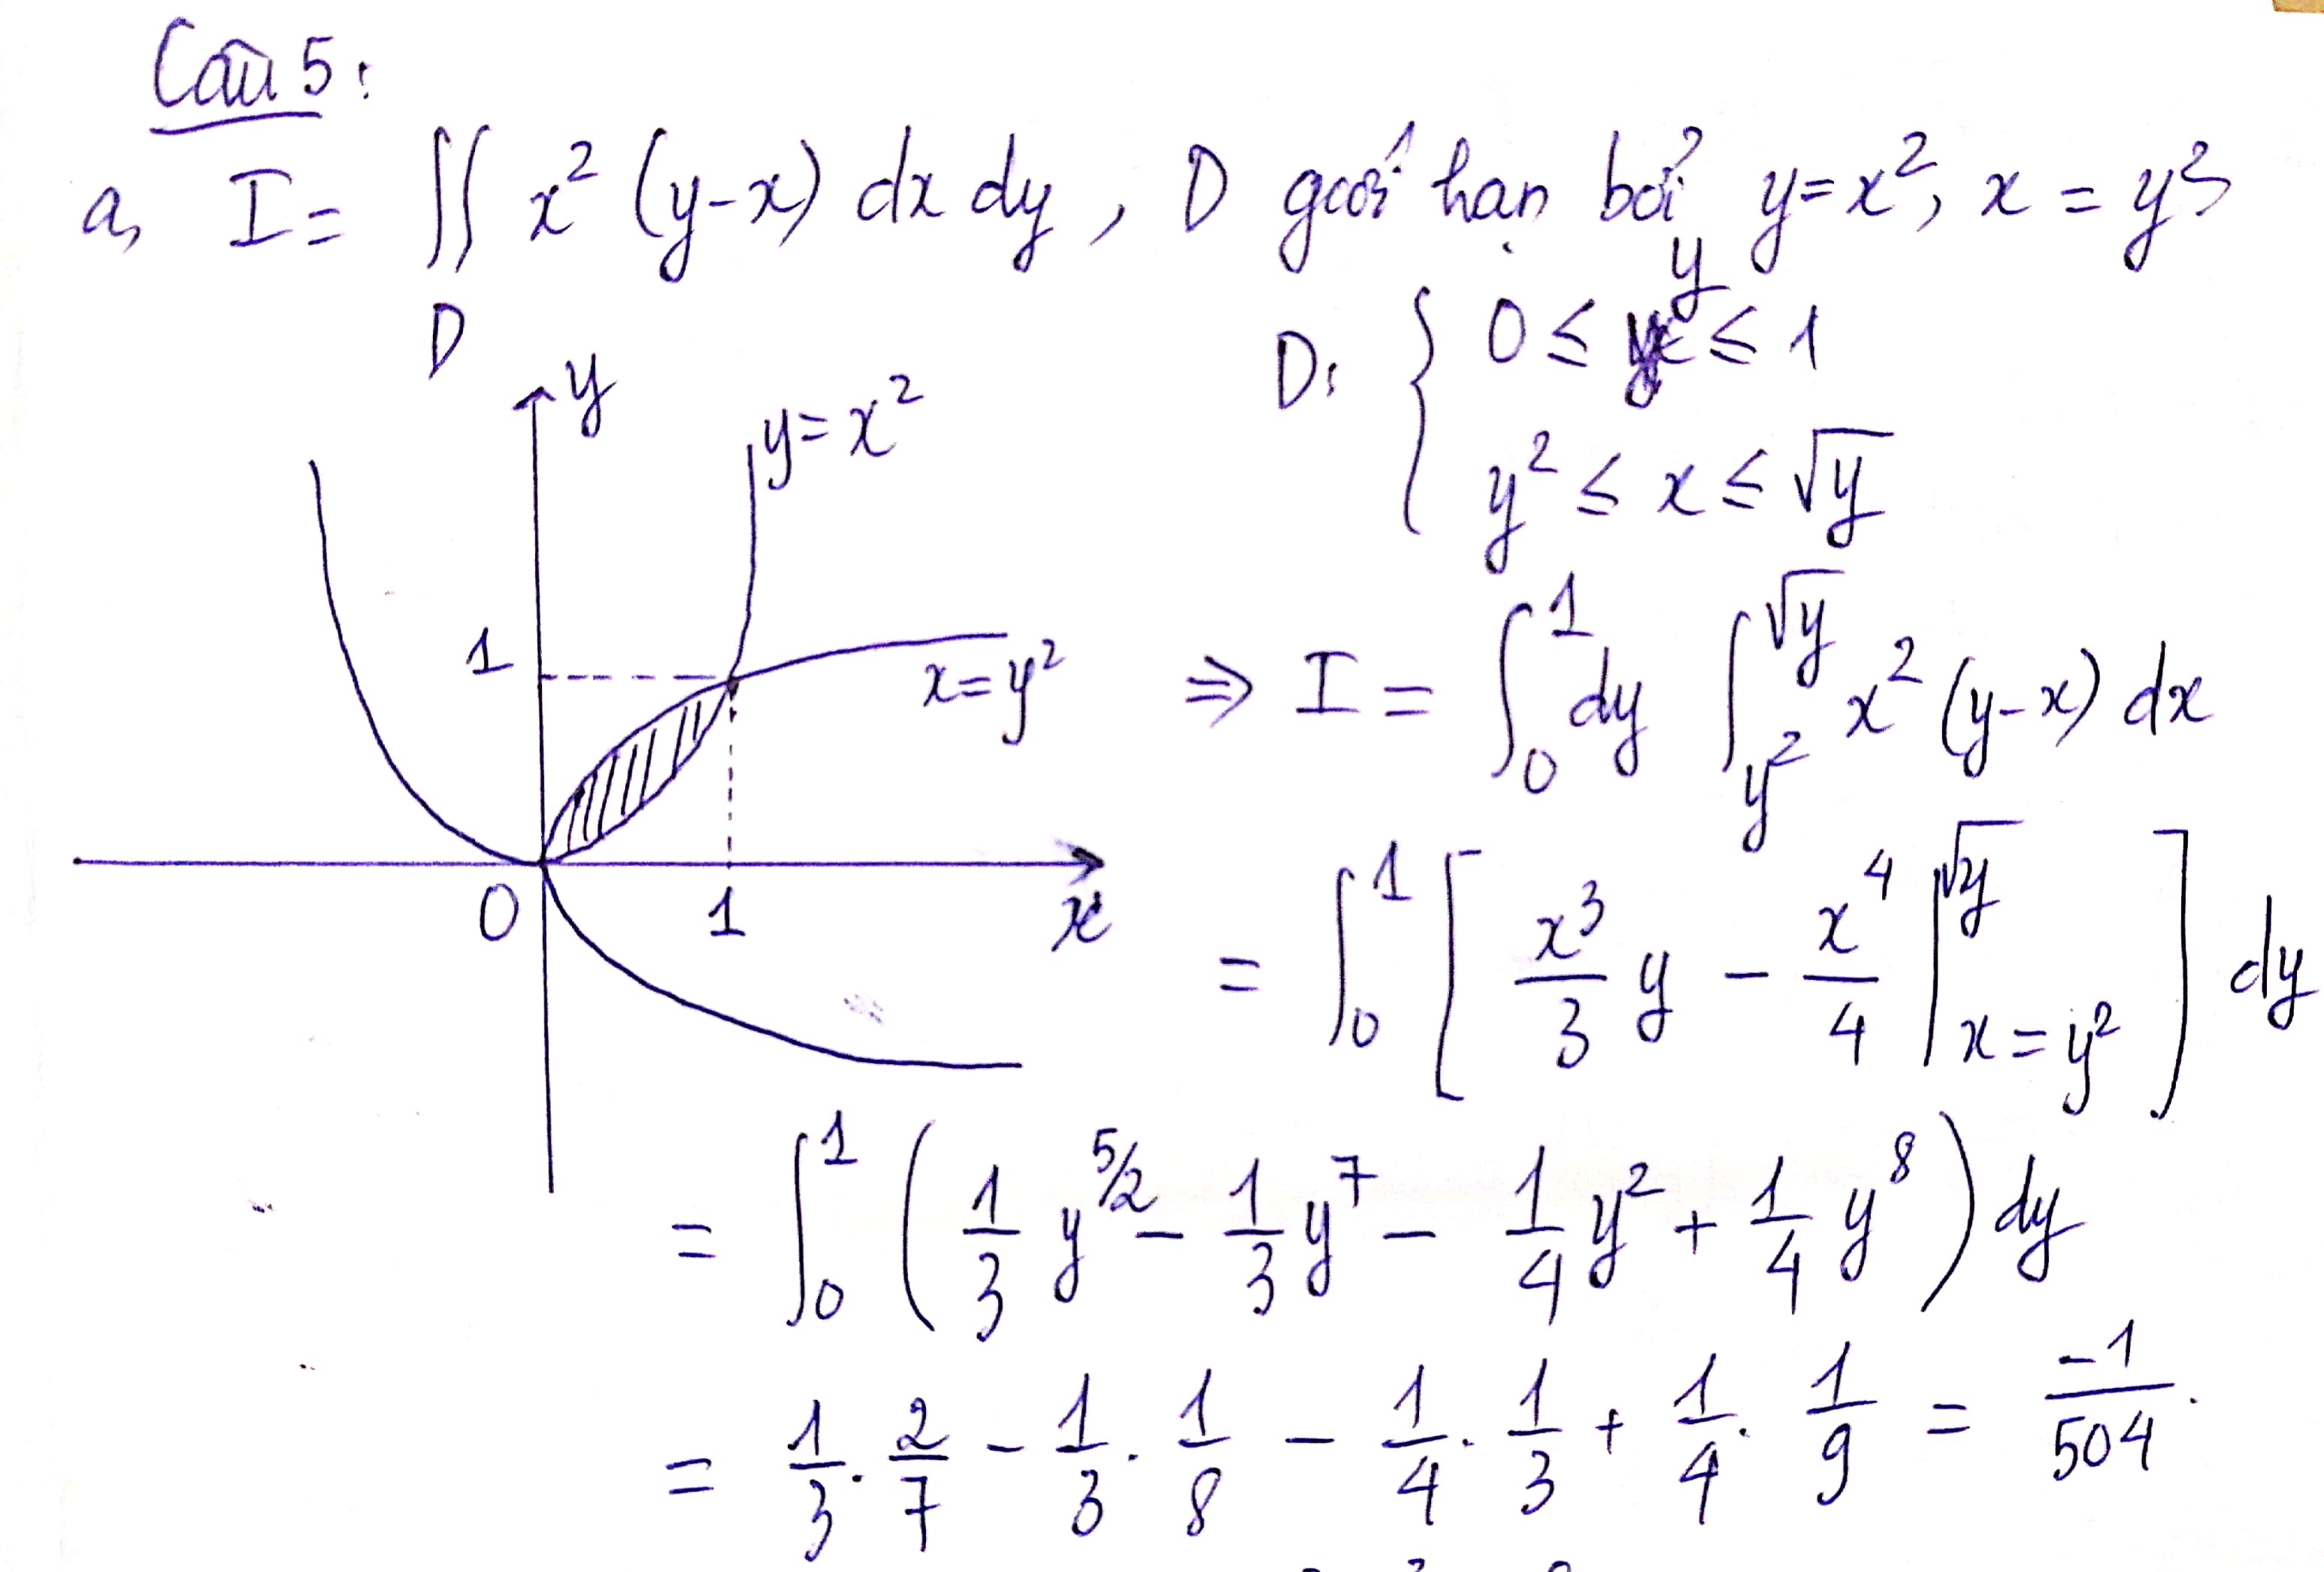 Câu 5:
a, I = ∬_D x² (y-x) dx dy, D giới hạn bởi y=x², x = y²
D: { 0 ≤ y ≤ 1
y² ≤ x ≤ √y
y
y=x²
1
x=y²
0
1
x
⇒ I = ∫₀¹ dy ∫_{y²}^{√y} x² (y-x) dx
= ∫₀¹ [ x³/3 y - x⁴/4 |_{x=y²}^{√y} ] dy
= ∫₀¹ ( 1/3 y^{5/2} - 1/3 y⁷ - 1/4 y² + 1/4 y⁸ ) dy
= 1/3 . 2/7 - 1/3 . 1/8 - 1/4 . 1/3 + 1/4 . 1/9 = -1/504 .